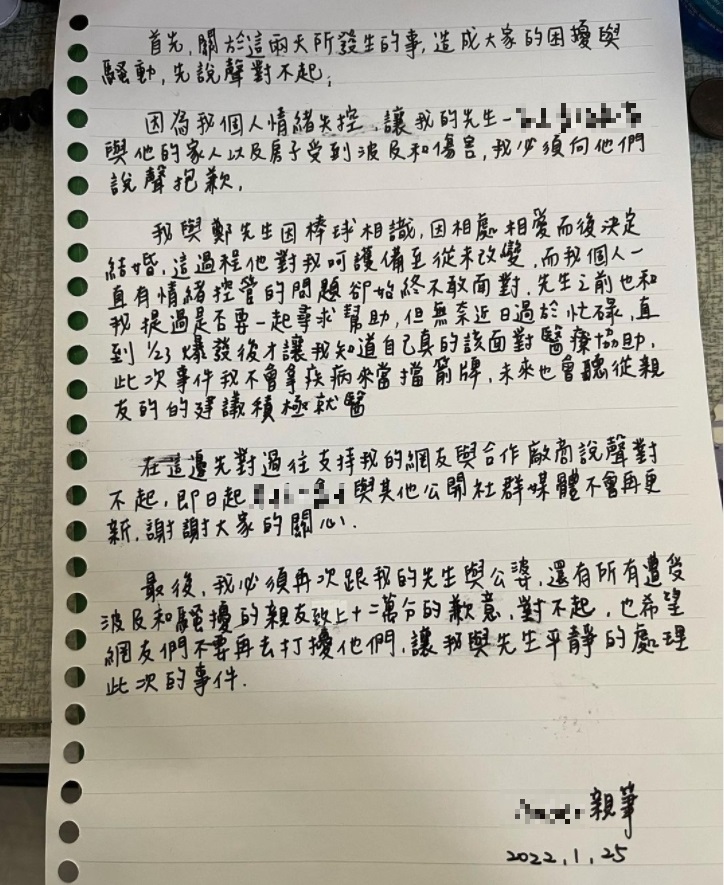 首先,關於這兩天所發生的事,造成大家的困擾與
騷動,先說聲對不起;
因為我個人情緒失控,讓我的先生-
與他的家人以及房子受到波及和傷害,我必須向他們
說聲抱歉.
我與鄭先生因棒球相識,因相處相愛而後決定
結婚.這過程他對我呵護備至從未改變,而我個人一
直有情緒控管的問題卻始終不敢面對.先生之前也和
我提過是否要一起尋求幫助,但無奈近日過於忙碌,直
到1/23爆發後才讓我知道自己真的該面對醫療協助.
此次事件我不會拿疾病來當擋箭牌,未來也會聽從親
友的的建議積極就醫
在這邊先對過往支持我的網友與合作廠商說聲對
不起,即日起與其他公開社群媒體不會再更
新.謝謝大家的關心.
最後,我必須再次跟我的先生與公婆.還有所有遭受
波及和騷擾的親友致上十二萬分的歉意.對不起,也希望
網友們不要再去打擾他們.讓我與先生平靜的處理
此次的事件.
親筆
2022.1.25